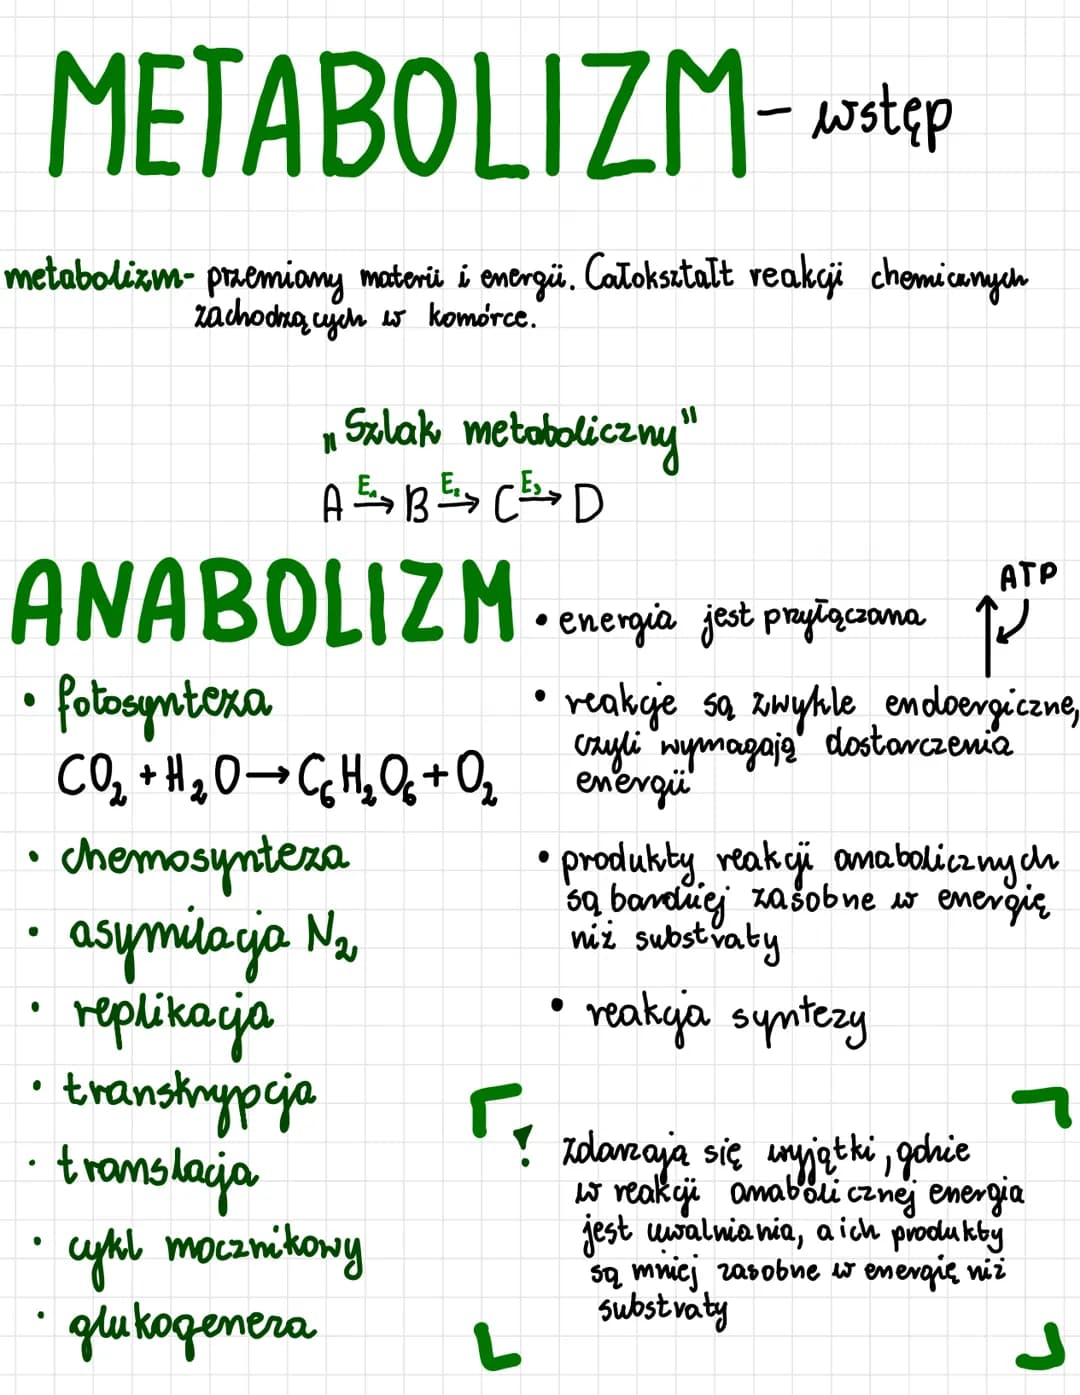 METABOLIZM - wstęp
metabolizm- przemiany materii i energii. Całokształt reakcji chemicznych
zachodzących w komórce.
„Szlak metaboliczny"
A E₁→ B E₂→ C E₃→ D
ANABOLIZM
• fotosynteza
CO₂ + H₂O → C₆H₂O₆ + O₂
• chemosynteza
• asymilacja N₂
• replikacja
• transkrypcja
• translacja
• cykl mocznikowy
• glukogeneza
ATP
• energia jest przyłączana
• reakcje są zwykle endoergiczne,
czyli wymagają dostarczenia
energii
• produkty reakcji anabolicznych
są bardziej zasobne w energię
niż substraty
• reakcja syntezy
! zdarzają się wyjątki, gdzie
w reakcji anabolicznej energia
jest uwalniania, a ich produkty
są mniej zasobne w energię niż
substraty